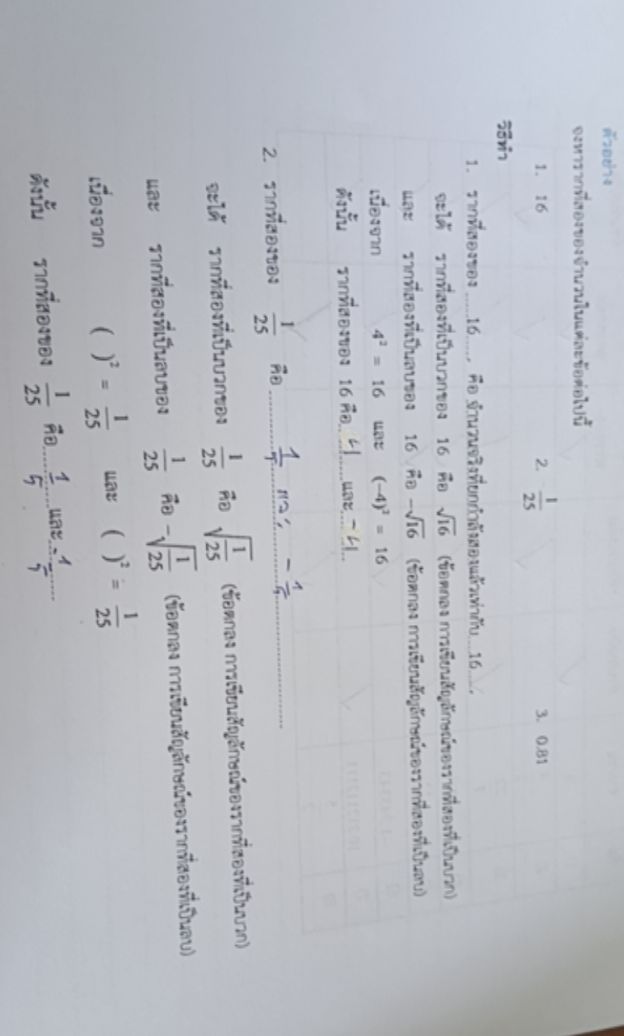 ตัวอย่าง
จงหารากที่สองของจำนวนในแต่ละข้อต่อไปนี้
1. 16 2. 1/25 3. 0.81
วิธีทำ
1. รากที่สองของ ......16....... คือ จำนวนจริงที่ยกกำลังสองแล้วเท่ากับ....16......
จะได้ รากที่สองที่เป็นบวกของ 16 คือ √16 (ข้อตกลง การเขียนสัญลักษณ์ของรากที่สองที่เป็นบวก)
และ รากที่สองที่เป็นลบของ 16 คือ -√16 (ข้อตกลง การเขียนสัญลักษณ์ของรากที่สองที่เป็นลบ)
เนื่องจาก 4² = 16 และ (-4)² = 16
ดังนั้น รากที่สองของ 16 คือ...4.....และ...-4...
2. รากที่สองของ 1/25 คือ ............1/5 และ -1/5............
จะได้ รากที่สองที่เป็นบวกของ 1/25 คือ √(1/25) (ข้อตกลง การเขียนสัญลักษณ์ของรากที่สองที่เป็นบวก)
และ รากที่สองที่เป็นลบของ 1/25 คือ -√(1/25) (ข้อตกลง การเขียนสัญลักษณ์ของรากที่สองที่เป็นลบ)
เนื่องจาก ( )² = 1/25 และ ( )² = 1/25
ดังนั้น รากที่สองของ 1/25 คือ......1/5...และ...-1/5......